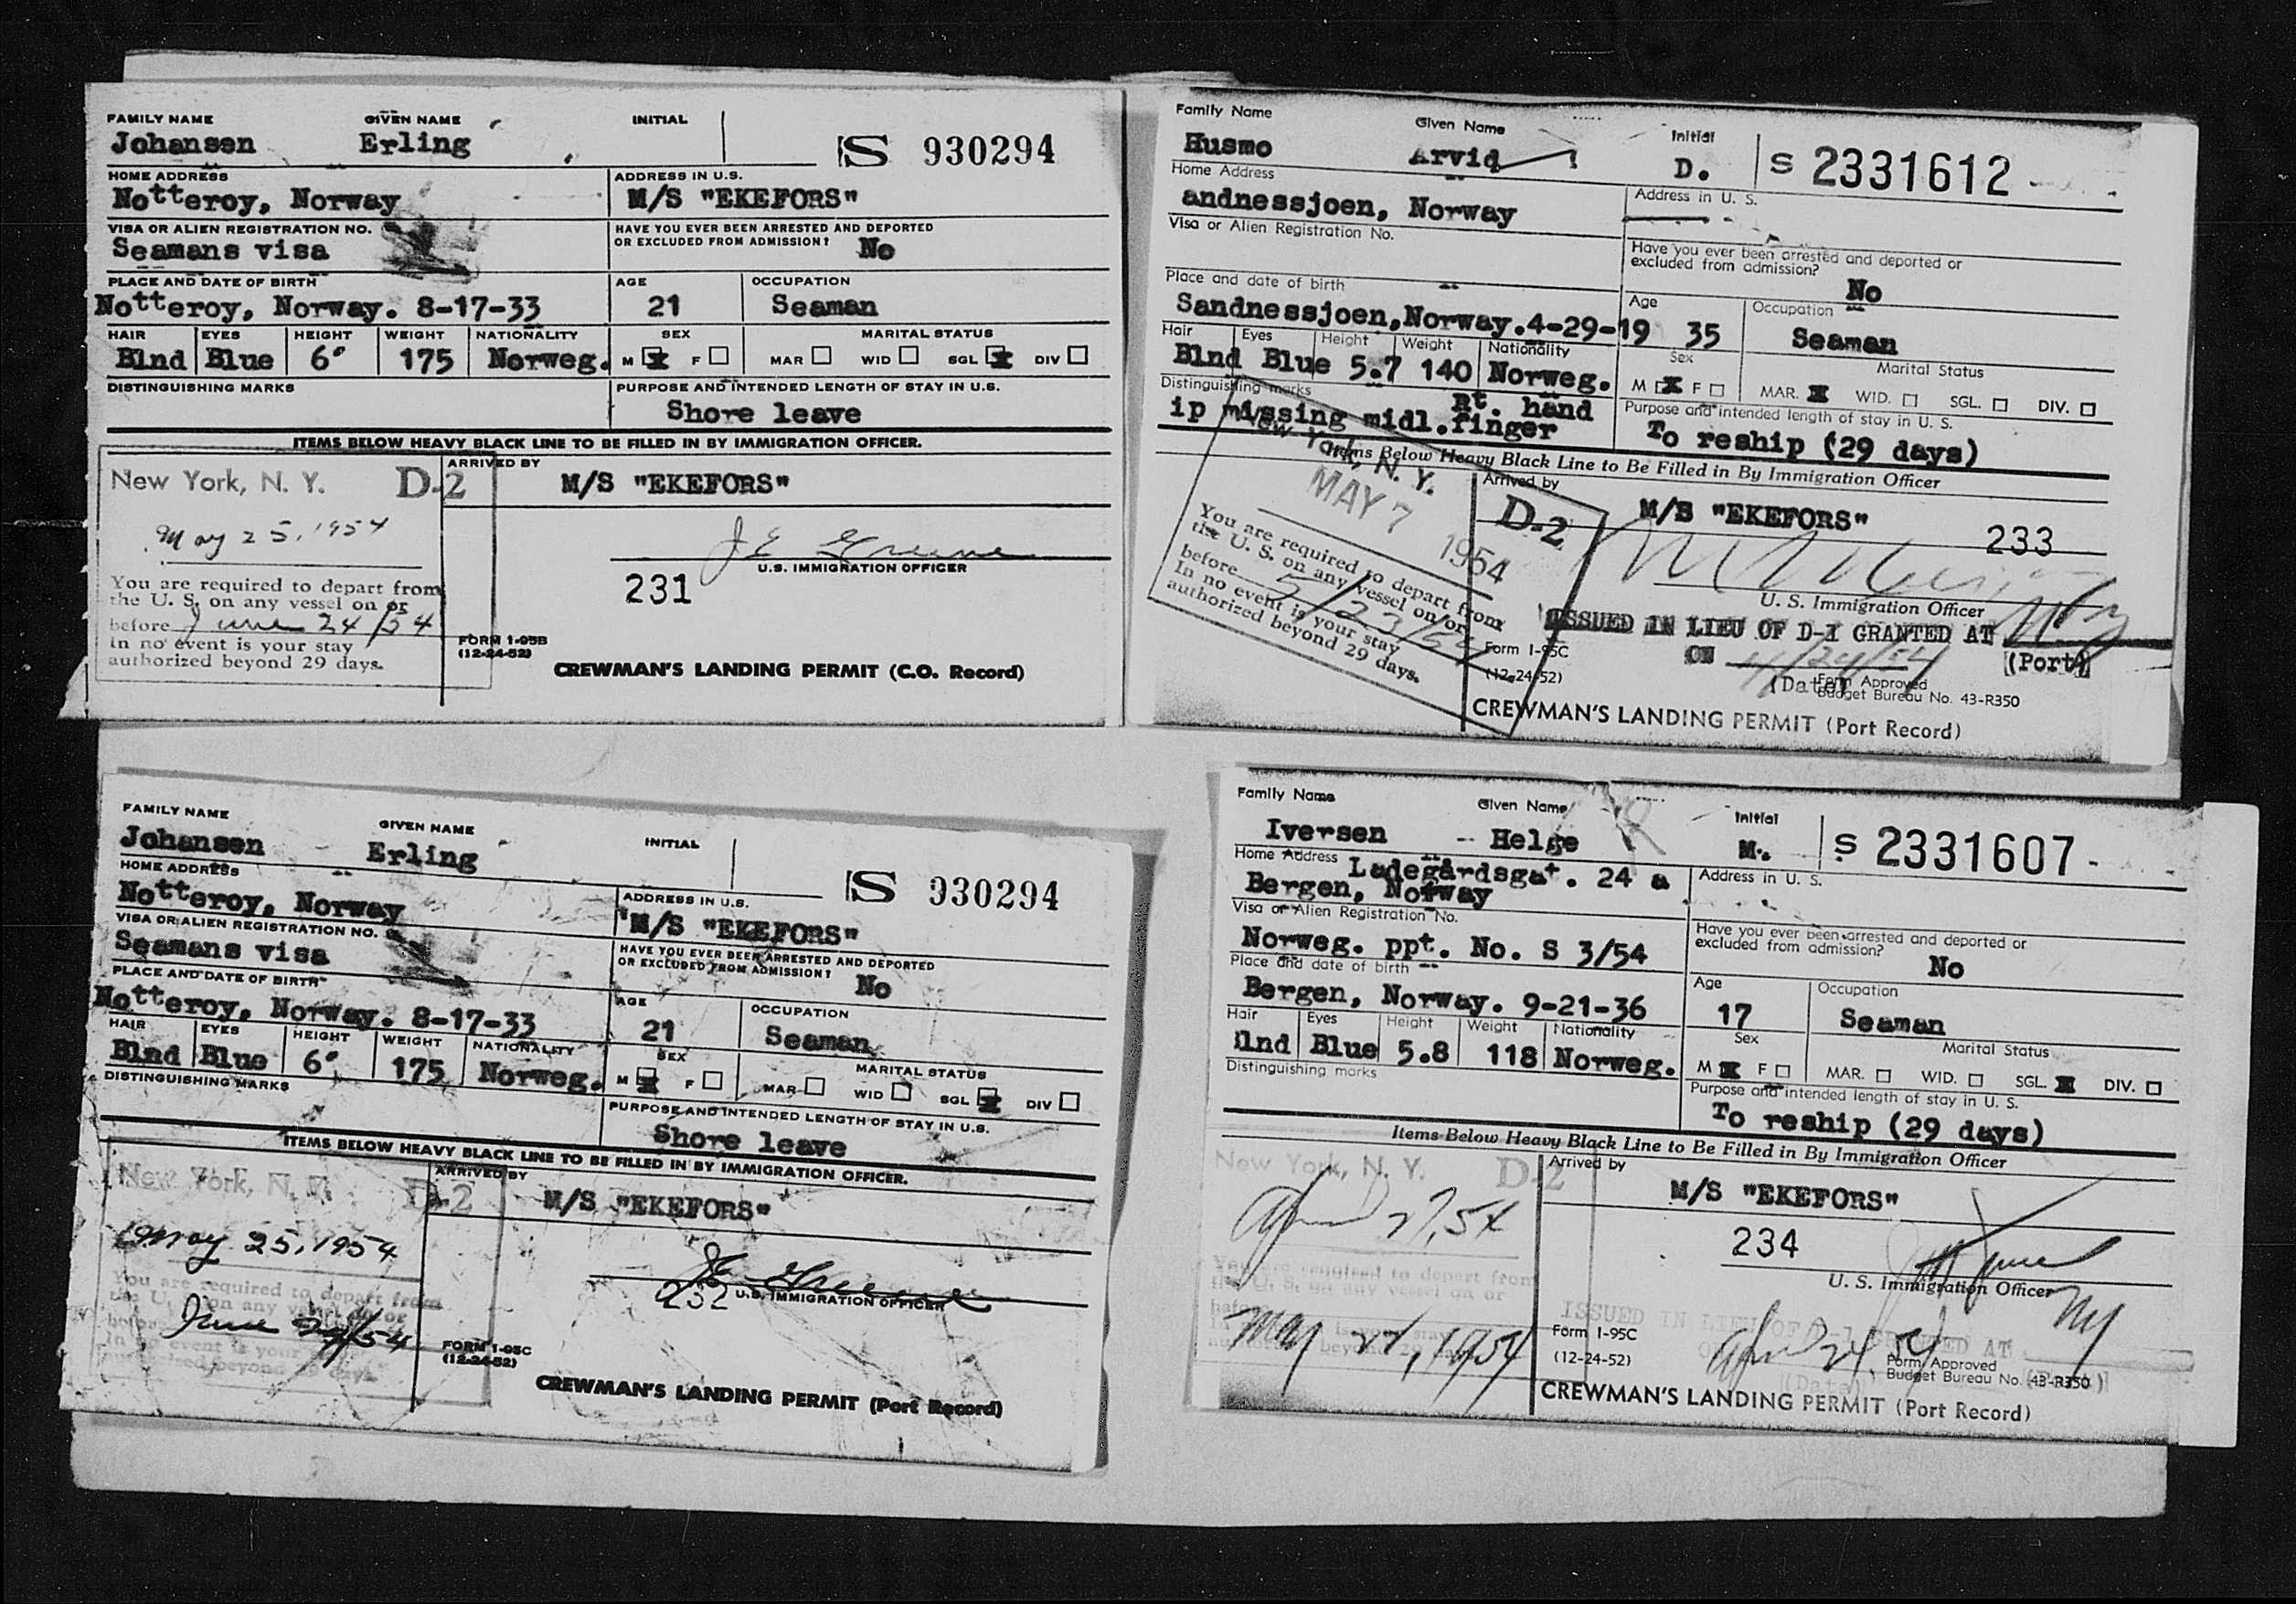 FAMILY NAME GIVEN NAME INITIAL
Johansen Erling S 930294
HOME ADDRESS ADDRESS IN U.S.
Notteroy, Norway M/S "EKEFORS"
VISA OR ALIEN REGISTRATION NO. HAVE YOU EVER BEEN ARRESTED AND DEPORTED
OR EXCLUDED FROM ADMISSION?
Seamans visa No
PLACE AND DATE OF BIRTH AGE OCCUPATION
Notteroy, Norway. 8-17-33 21 Seaman
HAIR EYES HEIGHT WEIGHT NATIONALITY SEX MARITAL STATUS
Blnd Blue 6" 175 Norweg. M F MAR WID SGL DIV
DISTINGUISHING MARKS PURPOSE AND INTENDED LENGTH OF STAY IN U.S.
Shore leave
ITEMS BELOW HEAVY BLACK LINE TO BE FILLED IN BY IMMIGRATION OFFICER.
ARRIVED BY
New York, N. Y. D-2 M/S "EKEFORS"
May 25, 1954
J E Greene
U.S. IMMIGRATION OFFICER
You are required to depart from 231
the U. S. on any vessel on or
before June 24/54
In no event is your stay
authorized beyond 29 days.
FORM I-95B
(12-24-52)
CREWMAN'S LANDING PERMIT (C.O. Record)
Family Name Given Name Initial
Husmo Arvid D. S 2331612
Home Address Address in U. S.
andnessjoen, Norway
Visa or Alien Registration No. Have you ever been arrested and deported or
excluded from admission?
No
Place and date of birth Age Occupation
Sandnessjoen, Norway. 4-29-19 35 Seaman
Hair Eyes Height Weight Nationality Sex Marital Status
Blnd Blue 5.7 140 Norweg. M F MAR. WID. SGL. DIV.
Distinguishing marks Purpose and intended length of stay in U. S.
Rt. hand
ip missing midl.finger To reship (29 days)
Items Below Heavy Black Line to Be Filled in By Immigration Officer
New York, N. Y. Arrived by
MAY 7 1954 D-2 M/S "EKEFORS" 233
You are required to depart from
the U. S. on any vessel on or
before 5/23/54
In no event is your stay
authorized beyond 29 days.
U. S. Immigration Officer
ISSUED IN LIEU OF D-1 GRANTED AT
ON 4/24/54 (Port)
(Date)
Form I-95C
(12-24-52)
Form Approved
Budget Bureau No. 43-R350
CREWMAN'S LANDING PERMIT (Port Record)
FAMILY NAME GIVEN NAME INITIAL
Johansen Erling S 930294
HOME ADDRESS ADDRESS IN U.S.
Notteroy, Norway M/S "EKEFORS"
VISA OR ALIEN REGISTRATION NO. HAVE YOU EVER BEEN ARRESTED AND DEPORTED
OR EXCLUDED FROM ADMISSION?
Seamans visa No
PLACE AND DATE OF BIRTH AGE OCCUPATION
Notteroy, Norway. 8-17-33 21 Seaman
HAIR EYES HEIGHT WEIGHT NATIONALITY SEX MARITAL STATUS
Blnd Blue 6" 175 Norweg. M F MAR WID SGL DIV
DISTINGUISHING MARKS PURPOSE AND INTENDED LENGTH OF STAY IN U.S.
Shore leave
ITEMS BELOW HEAVY BLACK LINE TO BE FILLED IN BY IMMIGRATION OFFICER.
ARRIVED BY
New York, N. Y. D-2 M/S "EKEFORS"
May 25, 1954
J E Greene
232 U.S. IMMIGRATION OFFICER
You are required to depart from
the U. S. on any vessel on or
before June 24/54
In no event is your stay
authorized beyond 29 days.
FORM I-95C
(12-24-52)
CREWMAN'S LANDING PERMIT (Port Record)
Family Name Given Name Initial
Iversen Helge M. S 2331607
Home Address Address in U. S.
Ladegårdsgat. 24 a
Bergen, Norway
Visa or Alien Registration No. Have you ever been arrested and deported or
excluded from admission?
Norweg. ppt. No. S 3/54 No
Place and date of birth Age Occupation
Bergen, Norway. 9-21-36 17 Seaman
Hair Eyes Height Weight Nationality Sex Marital Status
lnd Blue 5.8 118 Norweg. M F MAR. WID. SGL. DIV.
Distinguishing marks Purpose and intended length of stay in U. S.
To reship (29 days)
Items Below Heavy Black Line to Be Filled in By Immigration Officer
New York, N. Y. D-2 Arrived by
M/S "EKEFORS"
April 27, 54
234
U. S. Immigration Officer
You are required to depart from
the U. S. on any vessel on or
before May 27, 1954
ISSUED IN LIEU OF D-1 GRANTED AT NY
April 24 54
(Date) (Port)
Form I-95C
(12-24-52)
Form Approved
Budget Bureau No. 43-R350
CREWMAN'S LANDING PERMIT (Port Record)